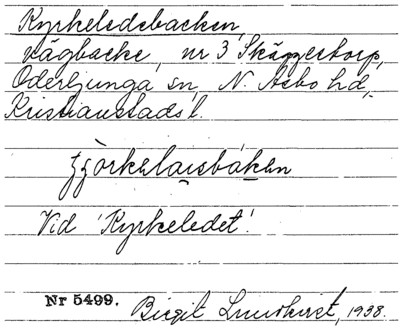 Kyrkeledsbacken,
vägbacke, nr 3 Skäggestorp,
Oderljunga sn, N. Åsbo hd,
Kristianstads l.
Vid 'Kyrkeledet'.
Nr 5499. Birgit Lundkvist, 1938.